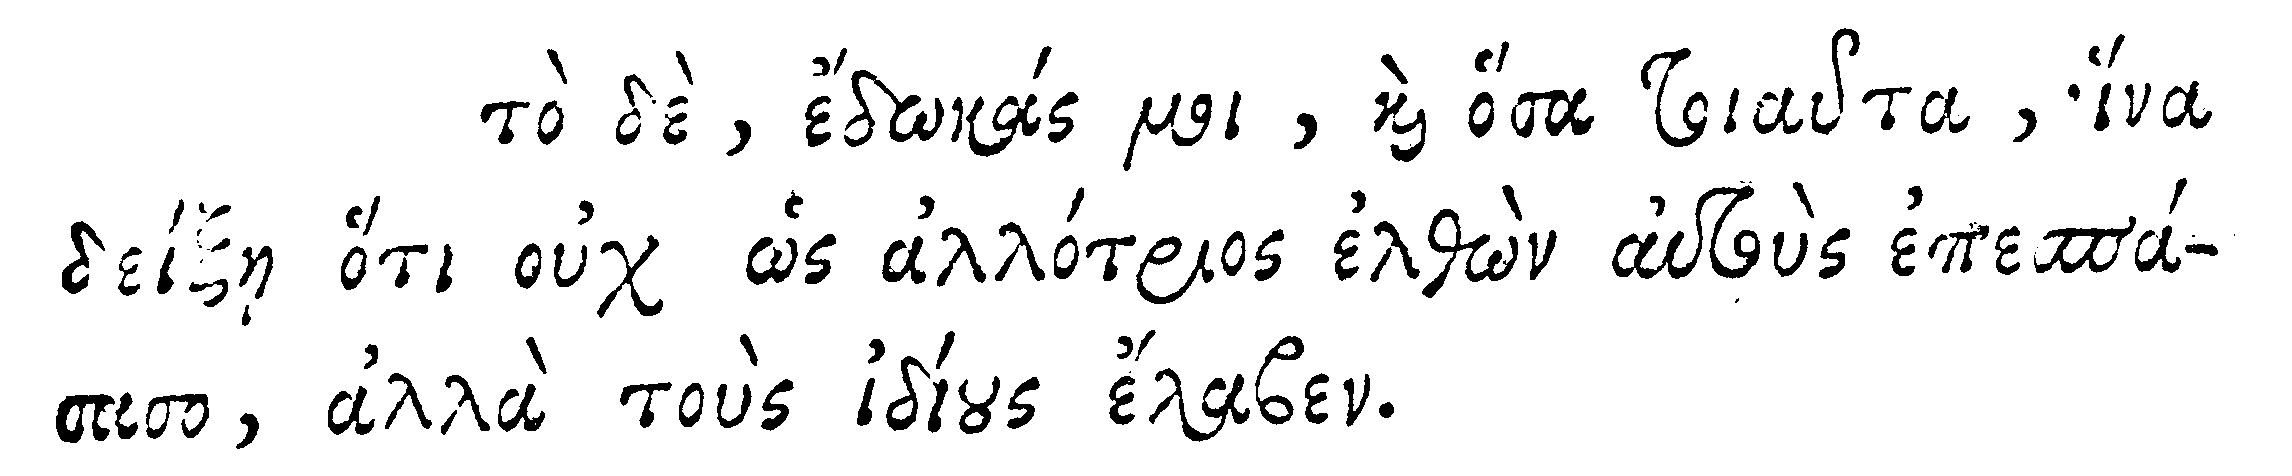 τὸ δὲ, ἔδωκάς μοι, καὶ ὅσα τοιαῦτα, ἵνα
δείξῃ ὅτι οὐχ ὡς ἀλλότριος ἐλθὼν αὐτοὺς ἐπεσπά-
σατο, ἀλλὰ τοὺς ἰδίους ἔλαβεν.